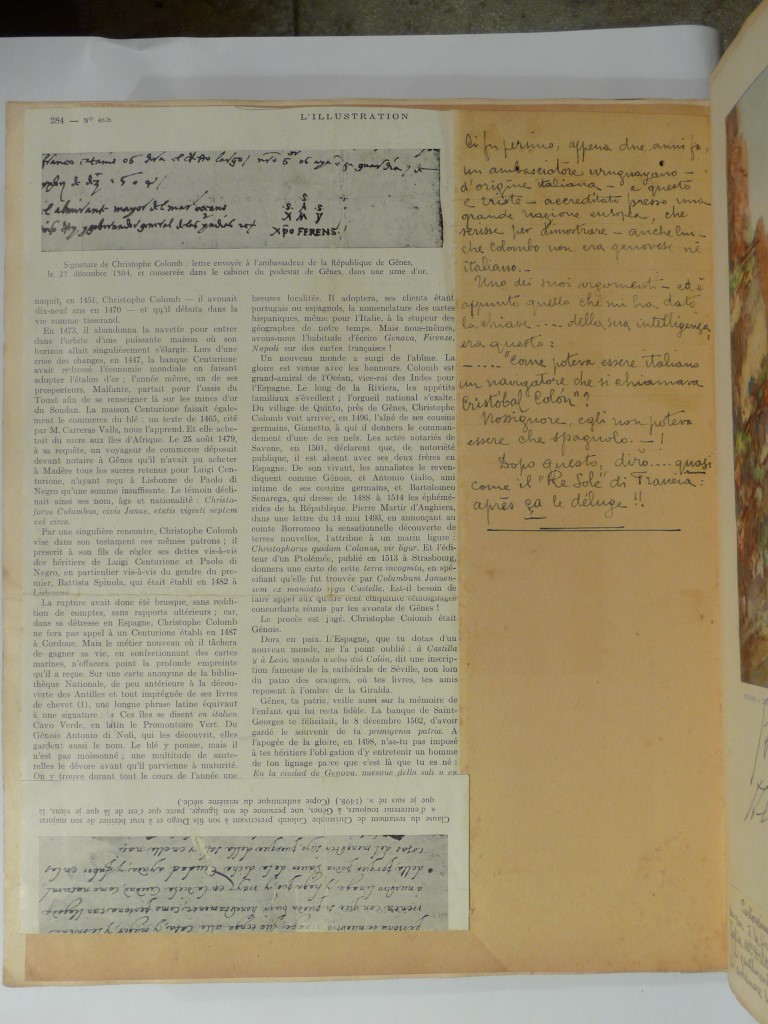 284 — N° 4676
L'ILLUSTRATION
el almirante mayor del mar oceano
.S.
.S. A .S.
X M Y
XPO FERENS
Signature de Christophe Colomb : lettre envoyée à l'ambassadeur de la République de Gênes,
le 27 décembre 1504, et conservée dans le cabinet du podestat de Gênes, dans une urne d'or.
naquit, en 1451, Christophe Colomb — il avouait
dix-neuf ans en 1470 — et qu'il débuta dans la
vie comme tisserand.
En 1473, il abandonna la navette pour entrer
dans l'orbite d'une puissante maison où son
horizon allait singulièrement s'élargir. Lors d'une
crise des changes, en 1447, la banque Centurione
avait redressé l'économie mondiale en faisant
adopter l'étalon d'or ; l'année même, un de ses
prospecteurs, Malfante, partait pour l'oasis du
Touat afin de se renseigner là sur les mines d'or
du Soudan. La maison Centurione faisait égale-
ment le commerce du blé : un texte de 1465, cité
par M. Carreras Valls, nous l'apprend. Et elle ache-
tait du sucre aux îles d'Afrique. Le 25 août 1479,
à sa requête, un voyageur de commerce déposait
devant notaire à Gênes qu'il n'avait pu acheter
à Madère tous les sucres retenus pour Luigi Cen-
turione, n'ayant reçu à Lisbonne de Paolo di
Negro qu'une somme insuffisante. Le témoin décli-
nait ainsi ses nom, âge et nationalité : Christo-
forus Columbus, civis Janue, etatis viginti septem
vel circa.
Par une singulière rencontre, Christophe Colomb
vise dans son testament ces mêmes patrons ; il
prescrit à son fils de régler ses dettes vis-à-vis
des héritiers de Luigi Centurione et Paolo di
Negro, en particulier vis-à-vis du gendre du pre-
mier, Battista Spinola, qui était établi en 1482 à
Lisbonne.
La rupture avait donc été brusque, sans reddi-
tion de comptes, sans rapports ultérieurs ; car,
dans sa détresse en Espagne, Christophe Colomb
ne fera pas appel à un Centurione établi en 1487
à Cordoue. Mais le métier nouveau où il tâchera
de gagner sa vie, en confectionnant des cartes
marines, n'effacera point la profonde empreinte
qu'il a reçue. Sur une carte anonyme de la biblio-
thèque Nationale, de peu antérieure à la décou-
verte des Antilles et tout imprégnée de ses livres
de chevet (1), une longue phrase latine équivaut
à une signature : « Ces îles se disent en italien
Cavo Verde, en latin le Promontoire Vert. Du
Génois Antonio di Noli, qui les découvrit, elles
gardent aussi le nom. Le blé y pousse, mais il
n'est pas moissonné ; une multitude de saute-
relles le dévore avant qu'il parvienne à maturité.
On y trouve durant tout le cours de l'année une
breuses localités. Il adoptera, ses clients étant
portugais ou espagnols, la nomenclature des cartes
hispaniques, même pour l'Italie, à la stupeur des
géographes de notre temps. Mais nous-mêmes,
avons-nous l'habitude d'écrire Genova, Firenze,
Napoli sur des cartes françaises !
Un nouveau monde a surgi de l'abîme. La
gloire est venue avec les honneurs. Colomb est
grand-amiral de l'Océan, vice-roi des Indes pour
l'Espagne. Le long de la Riviera, les appétits
familiaux s'éveillent ; l'orgueil national s'exalte.
Du village de Quinto, près de Gênes, Christophe
Colomb voit arriver, en 1496, l'aîné de ses cousins
germains, Gianetto, à qui il donnera le comman-
dement d'une de ses nefs. Les actes notariés de
Savone, en 1501, déclarent que, de notoriété
publique, il est absent avec ses deux frères en
Espagne. De son vivant, les annalistes le revendi-
quent comme Génois, et Antonio Gallo, ami
intime de ses cousins germains, et Bartolomeo
Senarega, qui dresse de 1488 à 1514 les éphémé-
rides de la République. Pierre Martir d'Anghiera,
dans une lettre du 14 mai 1493, en annonçant au
comte Borromeo la sensationnelle découverte de
terres nouvelles, l'attribue à un marin ligure :
Christophorus quidam Colonus, vir ligur. Et l'édi-
teur d'un Ptolémée, publié en 1513 à Strasbourg,
donnera une carte de cette terra incognita, en spé-
cifiant qu'elle fut trouvée par Columbum Januen-
sem ex mandato regis Castelle. Est-il besoin de
faire appel aux quatre cent cinquante témoignages
concordants réunis par les avocats de Gênes !
Le procès est jugé. Christophe Colomb était
Génois.
Dors en paix. L'Espagne, que tu dotas d'un
nouveau monde, ne t'a point oublié : á Castilla
y á León mundo nuebo dió Colón, dit une inscrip-
tion fameuse de la cathédrale de Séville, non loin
du patio des orangers, où tes livres, tes amis
reposent à l'ombre de la Giralda.
Gênes, ta patrie, veille aussi sur la mémoire de
l'enfant qui lui resta fidèle. La banque de Saint-
Georges te félicitait, le 8 décembre 1502, d'avoir
gardé le souvenir de ta primigenia patria. A
l'apogée de la gloire, en 1498, n'as-tu pas imposé
à tes héritiers l'obligation d'y entretenir un homme
de ton lignage parce que c'est là que tu es né :
En la ciudad de Genova, puesque della sali y en
Clause du testament de Christophe Colomb prescrivant à son fils Diego et à tout héritier de son majorat
« d'entretenir toujours, à Gênes, une personne de son lignage, parce que c'est de là que je viens, là
que je suis né ». (1498.) (Copie authentique du seizième siècle.)
Ci fu persino, appena due anni fa,
un ambasciatore uruguayano —
d'origine italiana — e questo
è triste — accreditato presso una
grande nazione europea, che
scrisse per dimostrare — anche lui —
che Colombo non era genovese nè
italiano..
Uno dei suoi argomenti — ed è
appunto quello che mi ha dato
la chiave .... della sua intelligenza,
era questo :
— ..... "Come poteva essere italiano
un navigatore che si chiamava
Cristóbal Colón" ?
Nossignore, egli non poteva
essere che spagnuolo. — !
Dopo questo, dirò .... quasi
come il "Re Sole" di Francia :
après ça le déluge !!